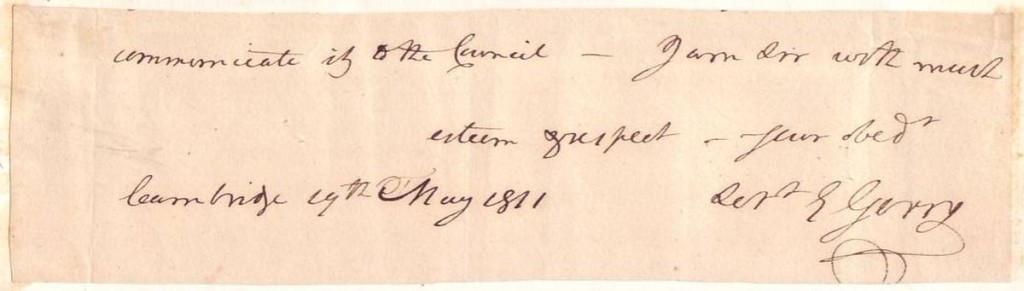 communicate it to the Council — I am Sir with much
esteem & respect — your obedt
Cambridge 19th May 1811 Servt E Gerry